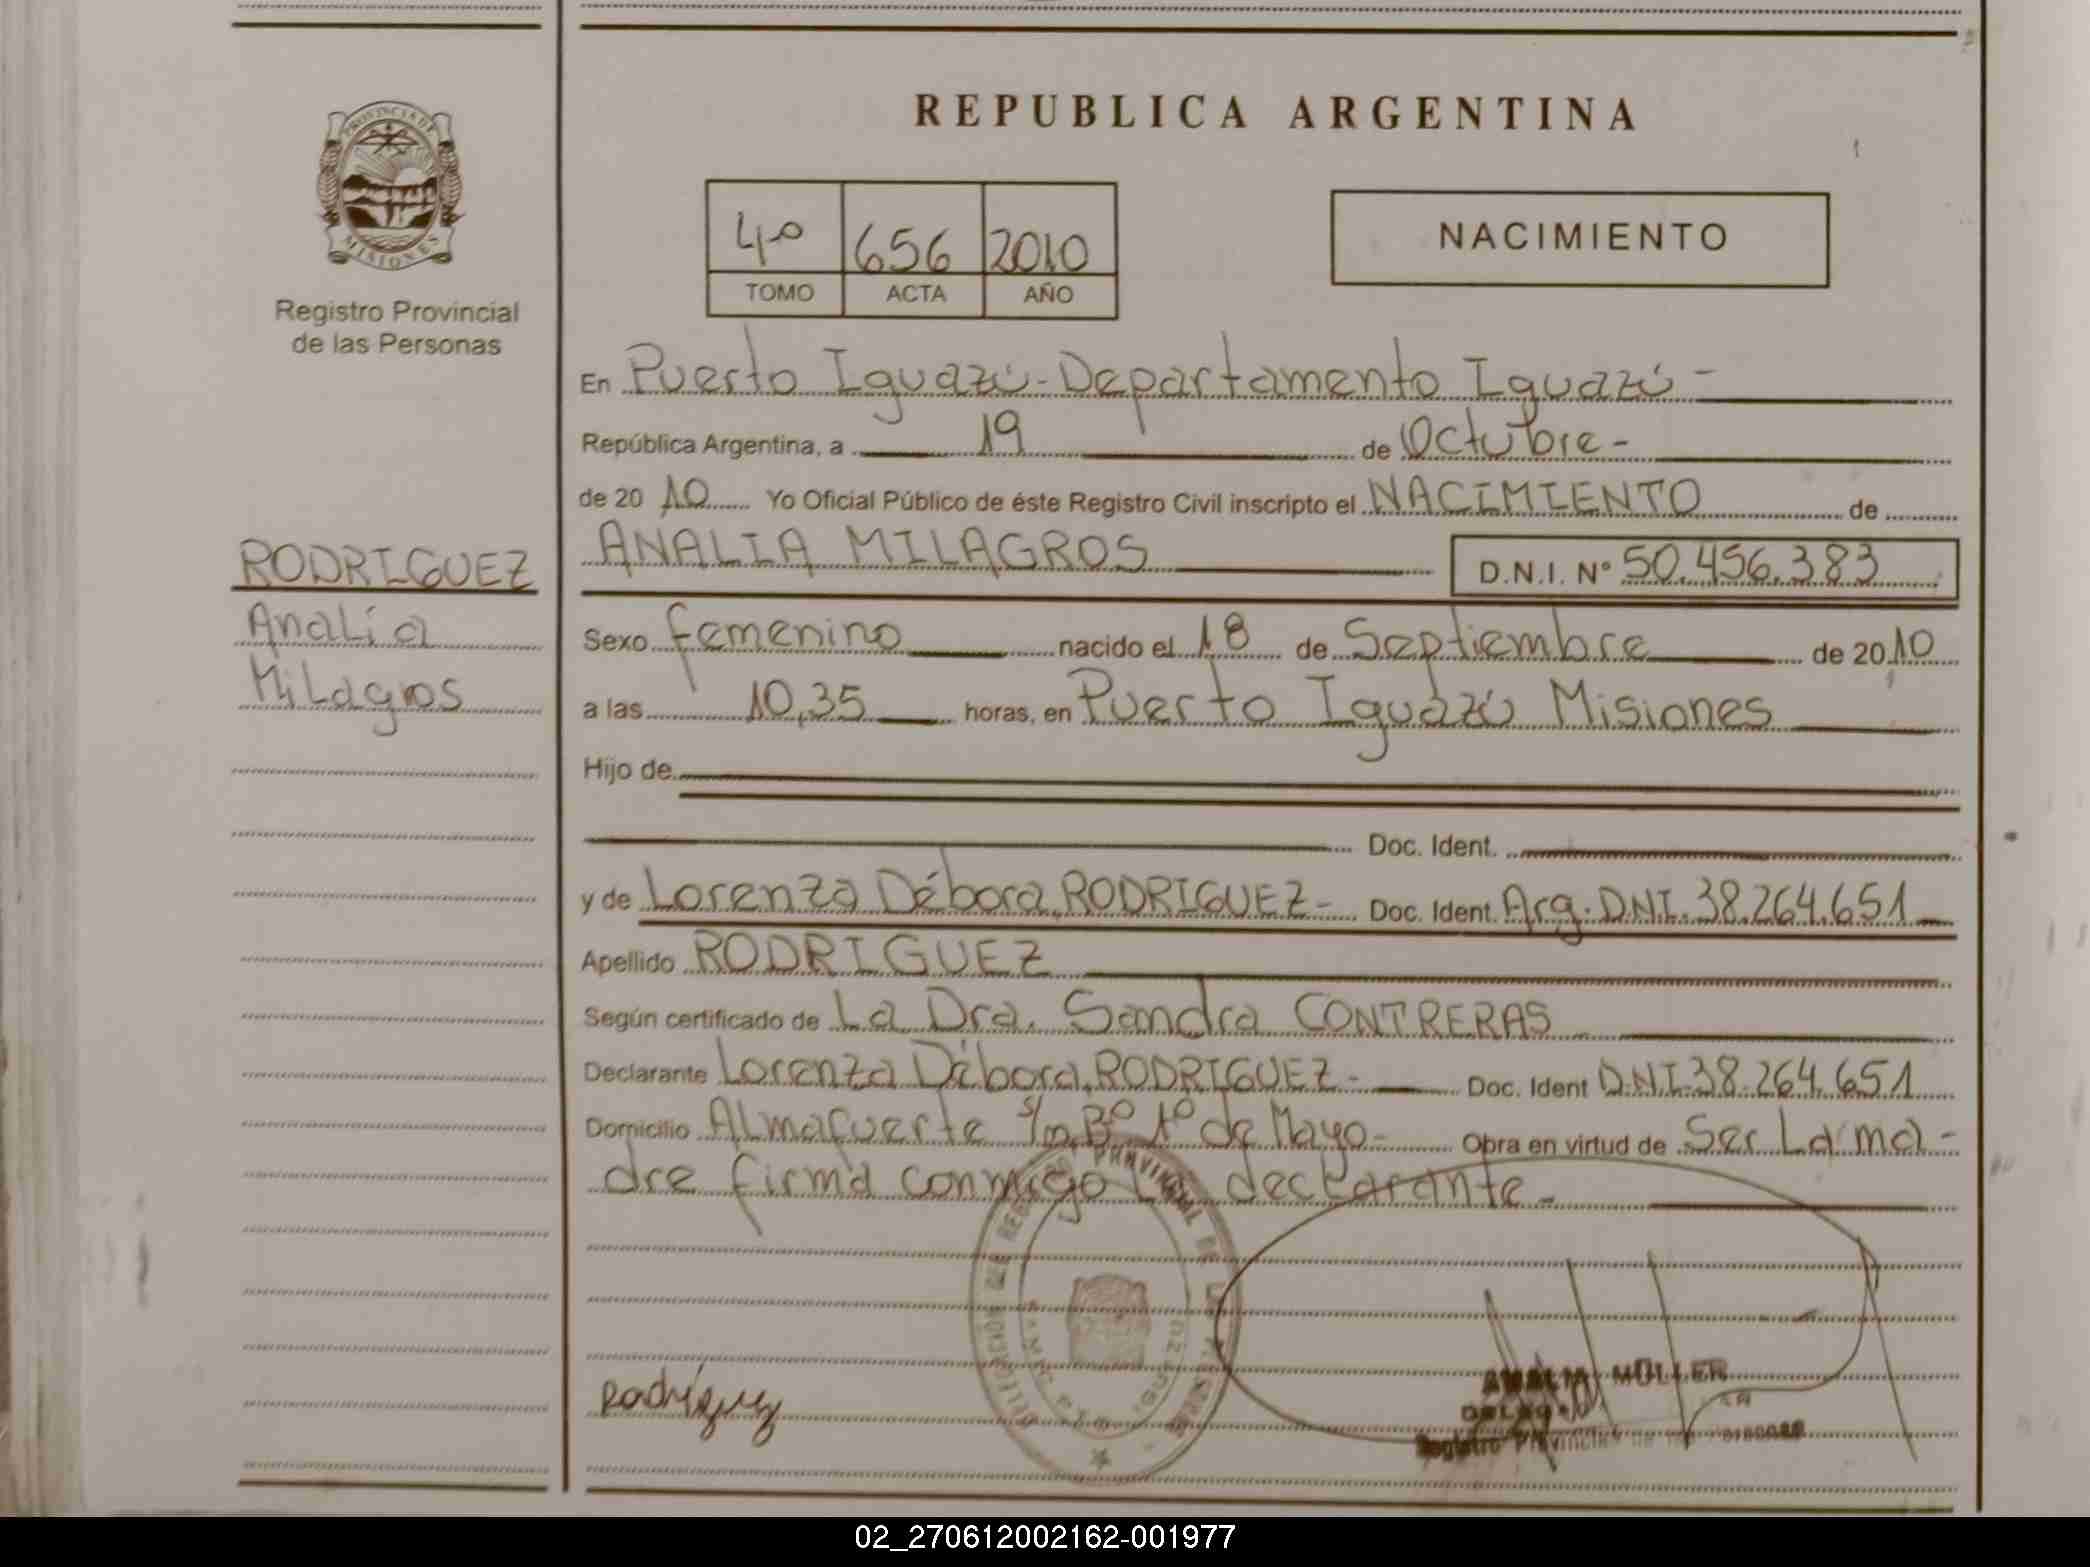 PROVINCIA DE
MISIONES
Registro Provincial
de las Personas
RODRIGUEZ
Analía
Milagros
REPUBLICA ARGENTINA
4º 656 2010
TOMO ACTA AÑO
NACIMIENTO
En Puerto Iguazú - Departamento Iguazú -
República Argentina, a 19 de Octubre -
de 20 10 Yo Oficial Público de éste Registro Civil inscripto el NACIMIENTO de
ANALIA MILAGROS D.N.I. Nº 50.456.383
Sexo femenino nacido el 18 de Septiembre de 20 10
a las 10,35 horas, en Puerto Iguazú Misiones
Hijo de
Doc. Ident.
y de Lorenza Débora RODRIGUEZ - Doc. Ident. Arg. D.N.I. 38.264.651
Apellido RODRIGUEZ
Según certificado de La Dra. Sandra CONTRERAS
Declarante Lorenza Débora RODRIGUEZ - Doc. Ident D.N.I. 38.264.651
Domicilio Almafuerte s/n Bº 1º de Mayo - Obra en virtud de Ser La ma-
dre firma conmigo La declarante -
DELEGACION DEL REGISTRO PROVINCIAL DE LAS PERSONAS
Rodríguez
MÜLLER
Registro Provincial de las Personas
02_270612002162-001977